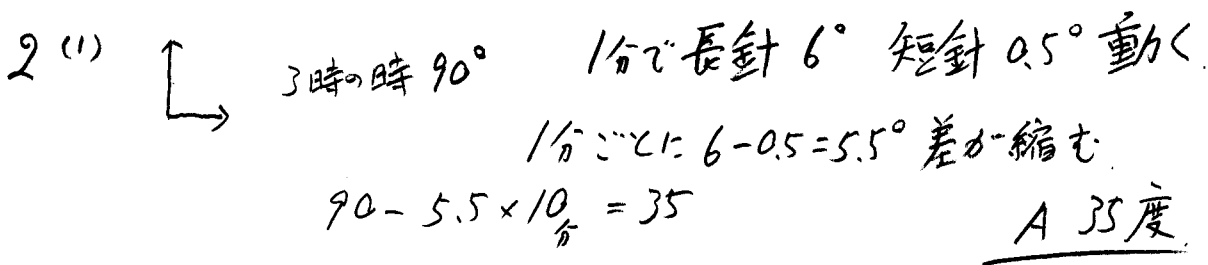 2 (1) 3時の時 90° 1分で長針 6° 短針 0.5° 動く
1分ごとに 6-0.5=5.5° 差が縮む.
90- 5.5×10分 = 35
A 35度.